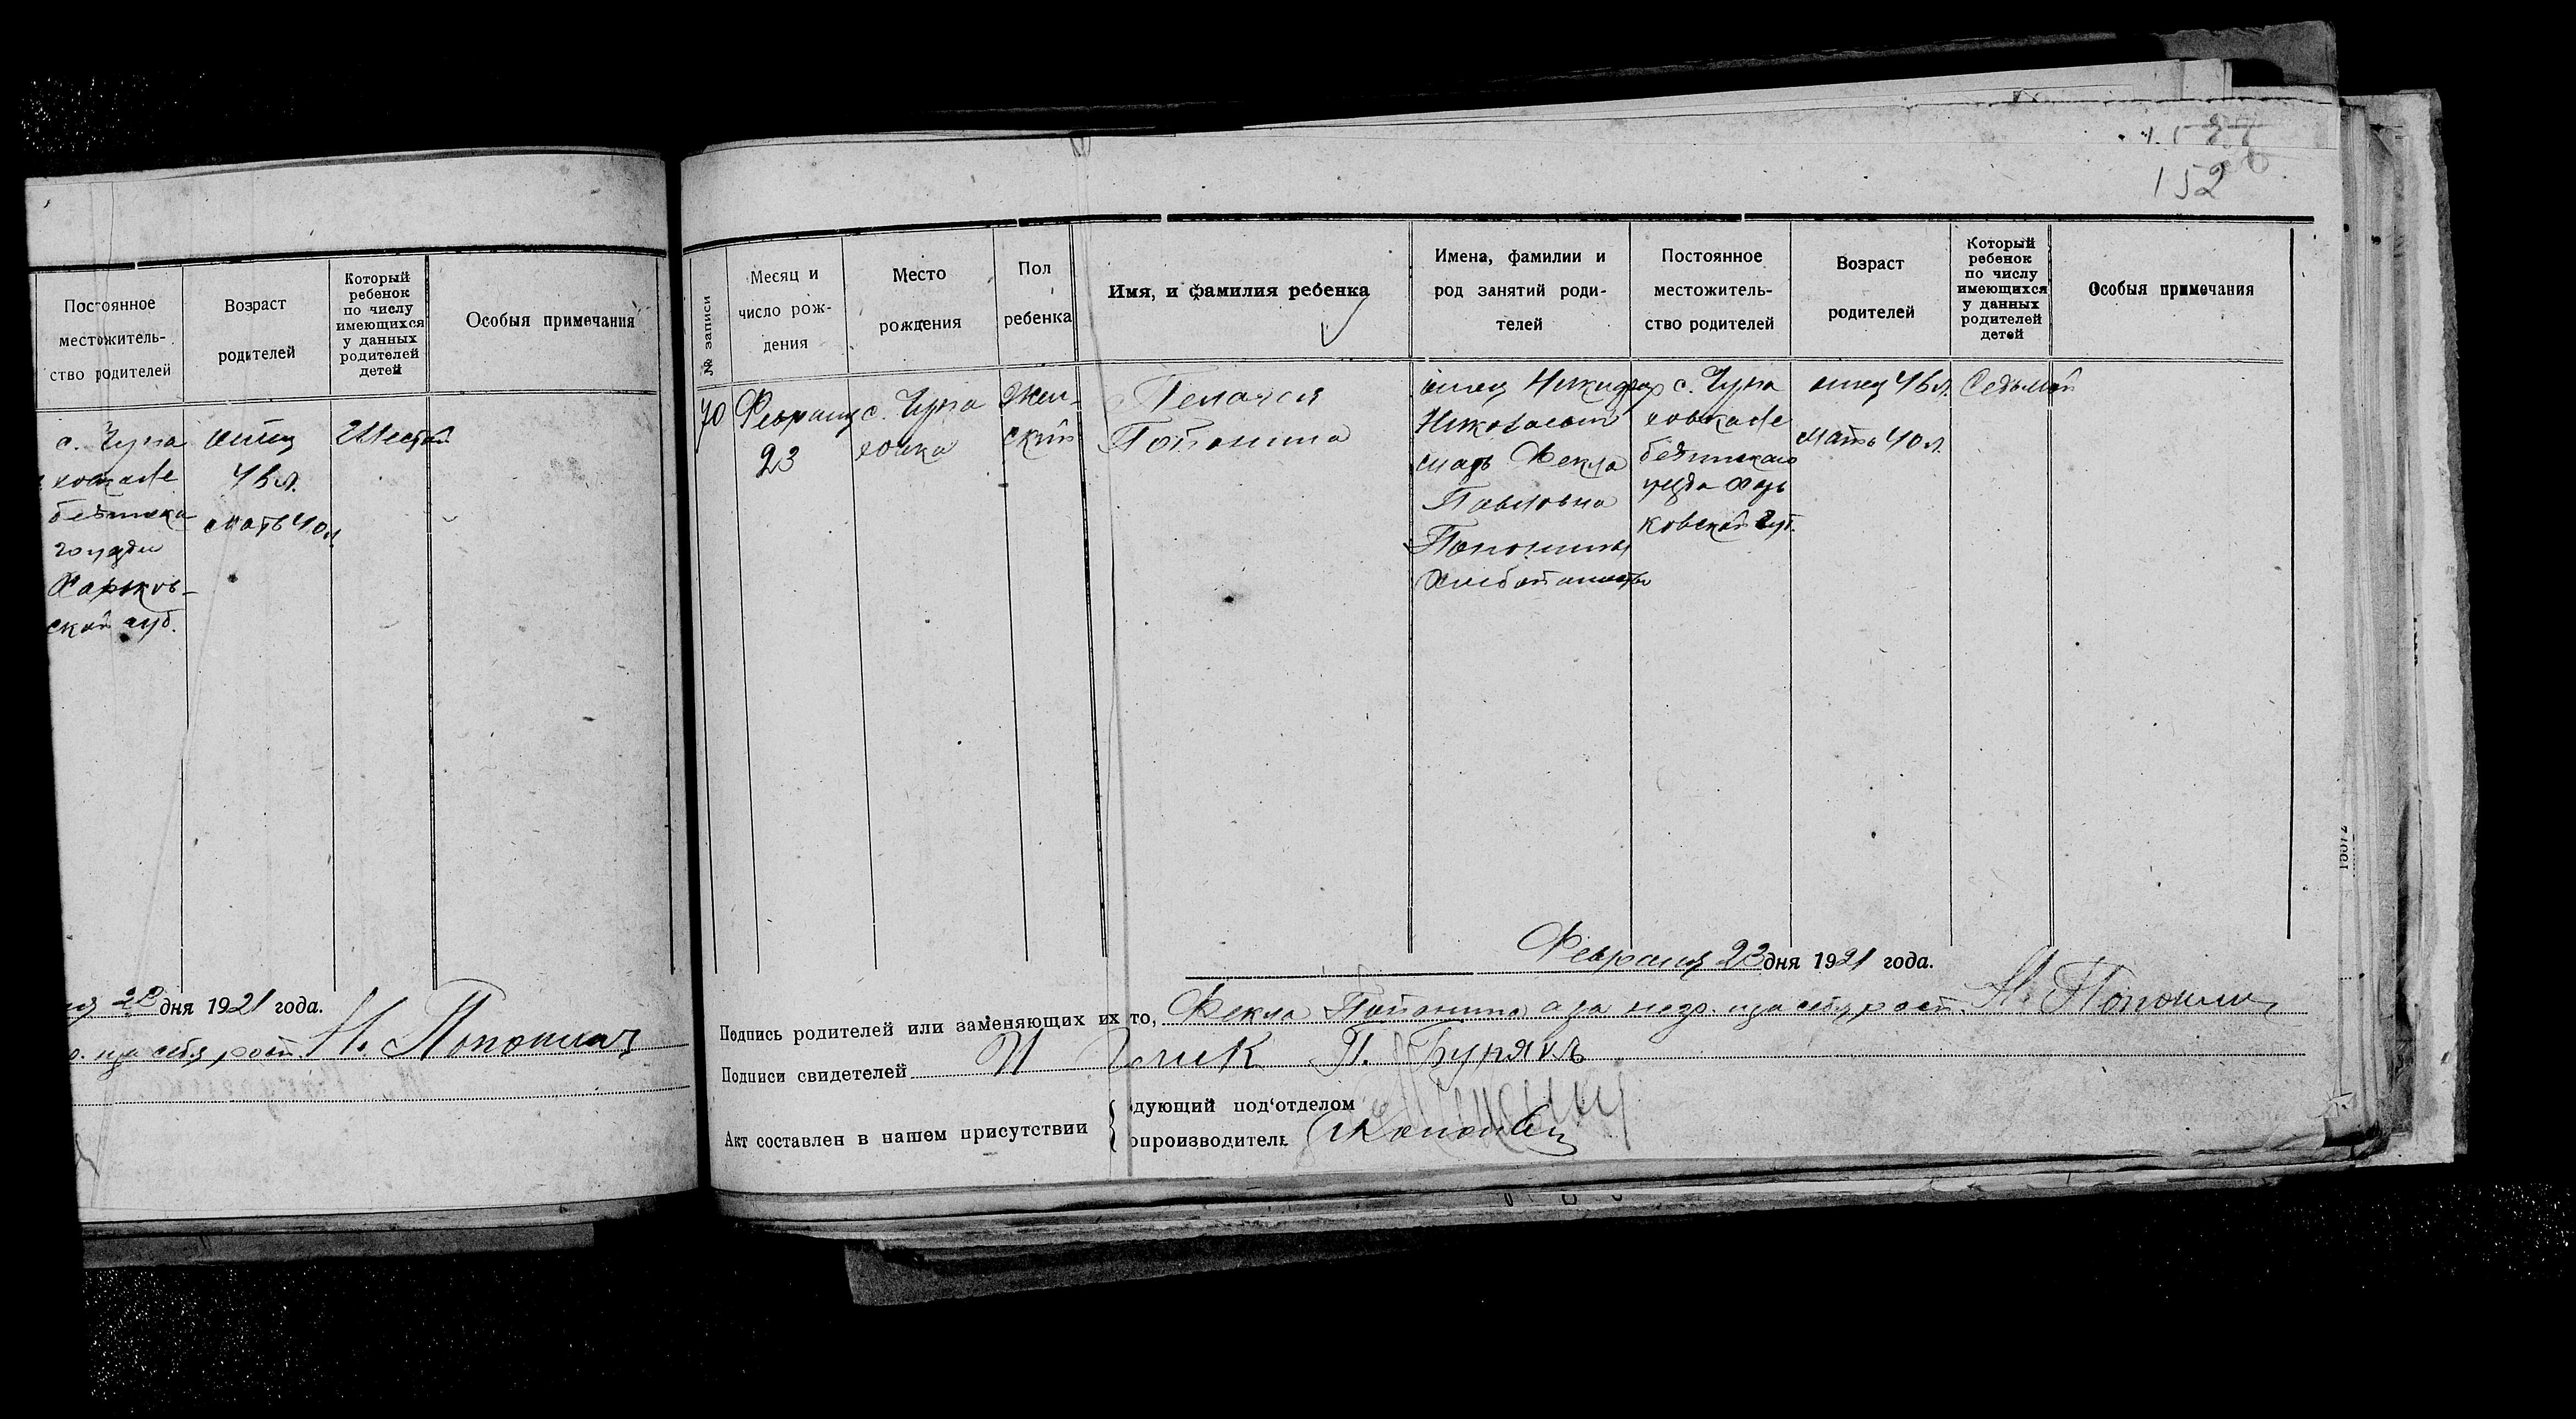 152
Постоянное
местожитель-
ство родителей
Возраст
родителей
Который
ребенок
по числу
имеющихся
у данных
родителей
детей
Особыя примечания
с. Чупа
отец
46 л.
мать 40 л.
Шестой
Харьков-
ской губ.
дня 1921 года.
Н. Попонин
№ записи
Месяц и
число рож-
дения
Место
рождения
Пол
ребенка
Имя, и фамилия ребенка
Имена, фамилии и
род занятий роди-
телей
Постоянное
местожитель-
ство родителей
Возраст
родителей
Который
ребенок
по числу
имеющихся
у данных
родителей
детей
Особыя примечания
70
Февраля
23
с. Чупа
ховка
Жен-
ский
Пелагея
Попонина
отец Никифор
Николаевич
мать Фекла
Павловна
Попонины
Хлебопашество
с. Чупа
уезда Харь
ковской губ.
отец 46 л.
мать 40 л.
Седьмой
Февраля 23 дня 1921 года.
Подпись родителей или заменяющих их то, Фекла Попонина а за негр. и за себя расп. Н. Попонин
Подписи свидетелей П. Буряк
Акт составлен в нашем присутствии
дующий под'отделом
опроизводитель